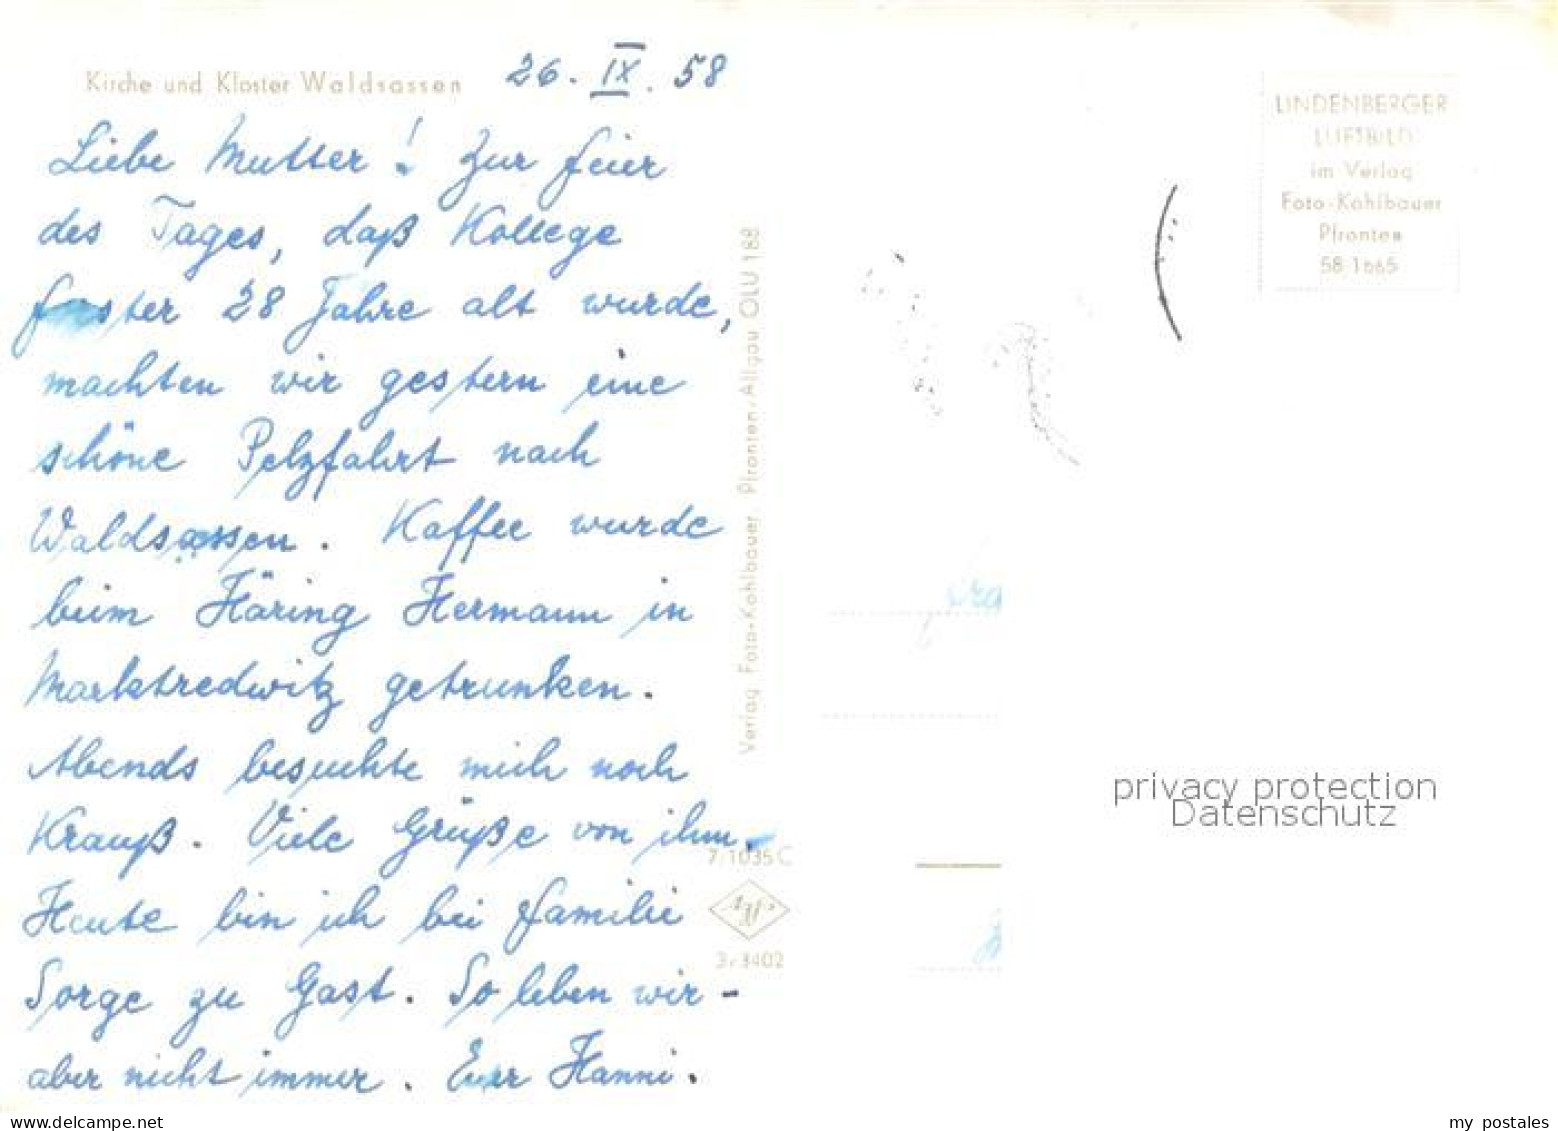 Kirche und Kloster Waldsassen
26. IX. 58
Liebe Mutter! Zur Feier
des Tages, daß Kollege
Forster 28 Jahre alt wurde,
machten wir gestern eine
schöne Pelzfahrt nach
Waldsassen. Kaffee wurde
beim Häring Hermann in
Marktredwitz getrunken.
Abends besuchte mich noch
Krauß. Viele Grüße von ihm.
Heute bin ich bei Familie
Sorge zu Gast. So leben wir -
aber nicht immer. Euer Hanni.
Verlag Foto-Kohlbauer Pfronten-Allgäu OLU 188
7/1035 C
3/3402
LINDENBERGER
LUFTBILD
im Verlag
Foto-Kohlbauer
Pfronten
58/1665
privacy protection
Datenschutz
my postales